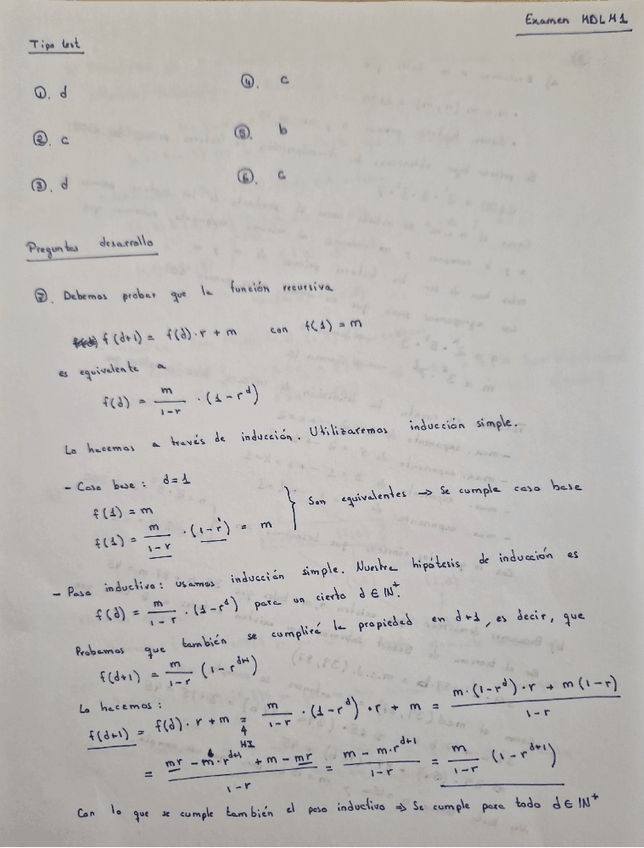 Examen MDL M1
Tipo test
①. d
④. c
②. c
⑤. b
③. d
⑥. c
Preguntas desarrollo
⑦. Debemos probar que la función recursiva
f(d+1) = f(d)·r + m con f(1) = m
es equivalente a
f(d) = m/(1-r) · (1-r^d)
Lo hacemos a través de inducción. Utilizaremos inducción simple.
- Caso base: d=1
f(1) = m
f(1) = m/(1-r) · (1-r^1) = m } Son equivalentes → Se cumple caso base
- Paso inductivo: usamos inducción simple. Nuestra hipótesis de inducción es
f(d) = m/(1-r) · (1-r^d) para un cierto d ∈ ℕ⁺.
Probemos que también se cumplirá la propiedad en d+1, es decir, que
f(d+1) = m/(1-r) (1-r^(d+1))
Lo hacemos:
f(d+1) = f(d)·r + m = m/(1-r) · (1-r^d)·r + m = (m·(1-r^d)·r + m(1-r))/(1-r)
↑
HI
= (mr - m·r^(d+1) + m - mr)/(1-r) = (m - m·r^(d+1))/(1-r) = m/(1-r) (1-r^(d+1))
Con lo que se cumple también el paso inductivo ⇒ Se cumple para todo d ∈ ℕ⁺